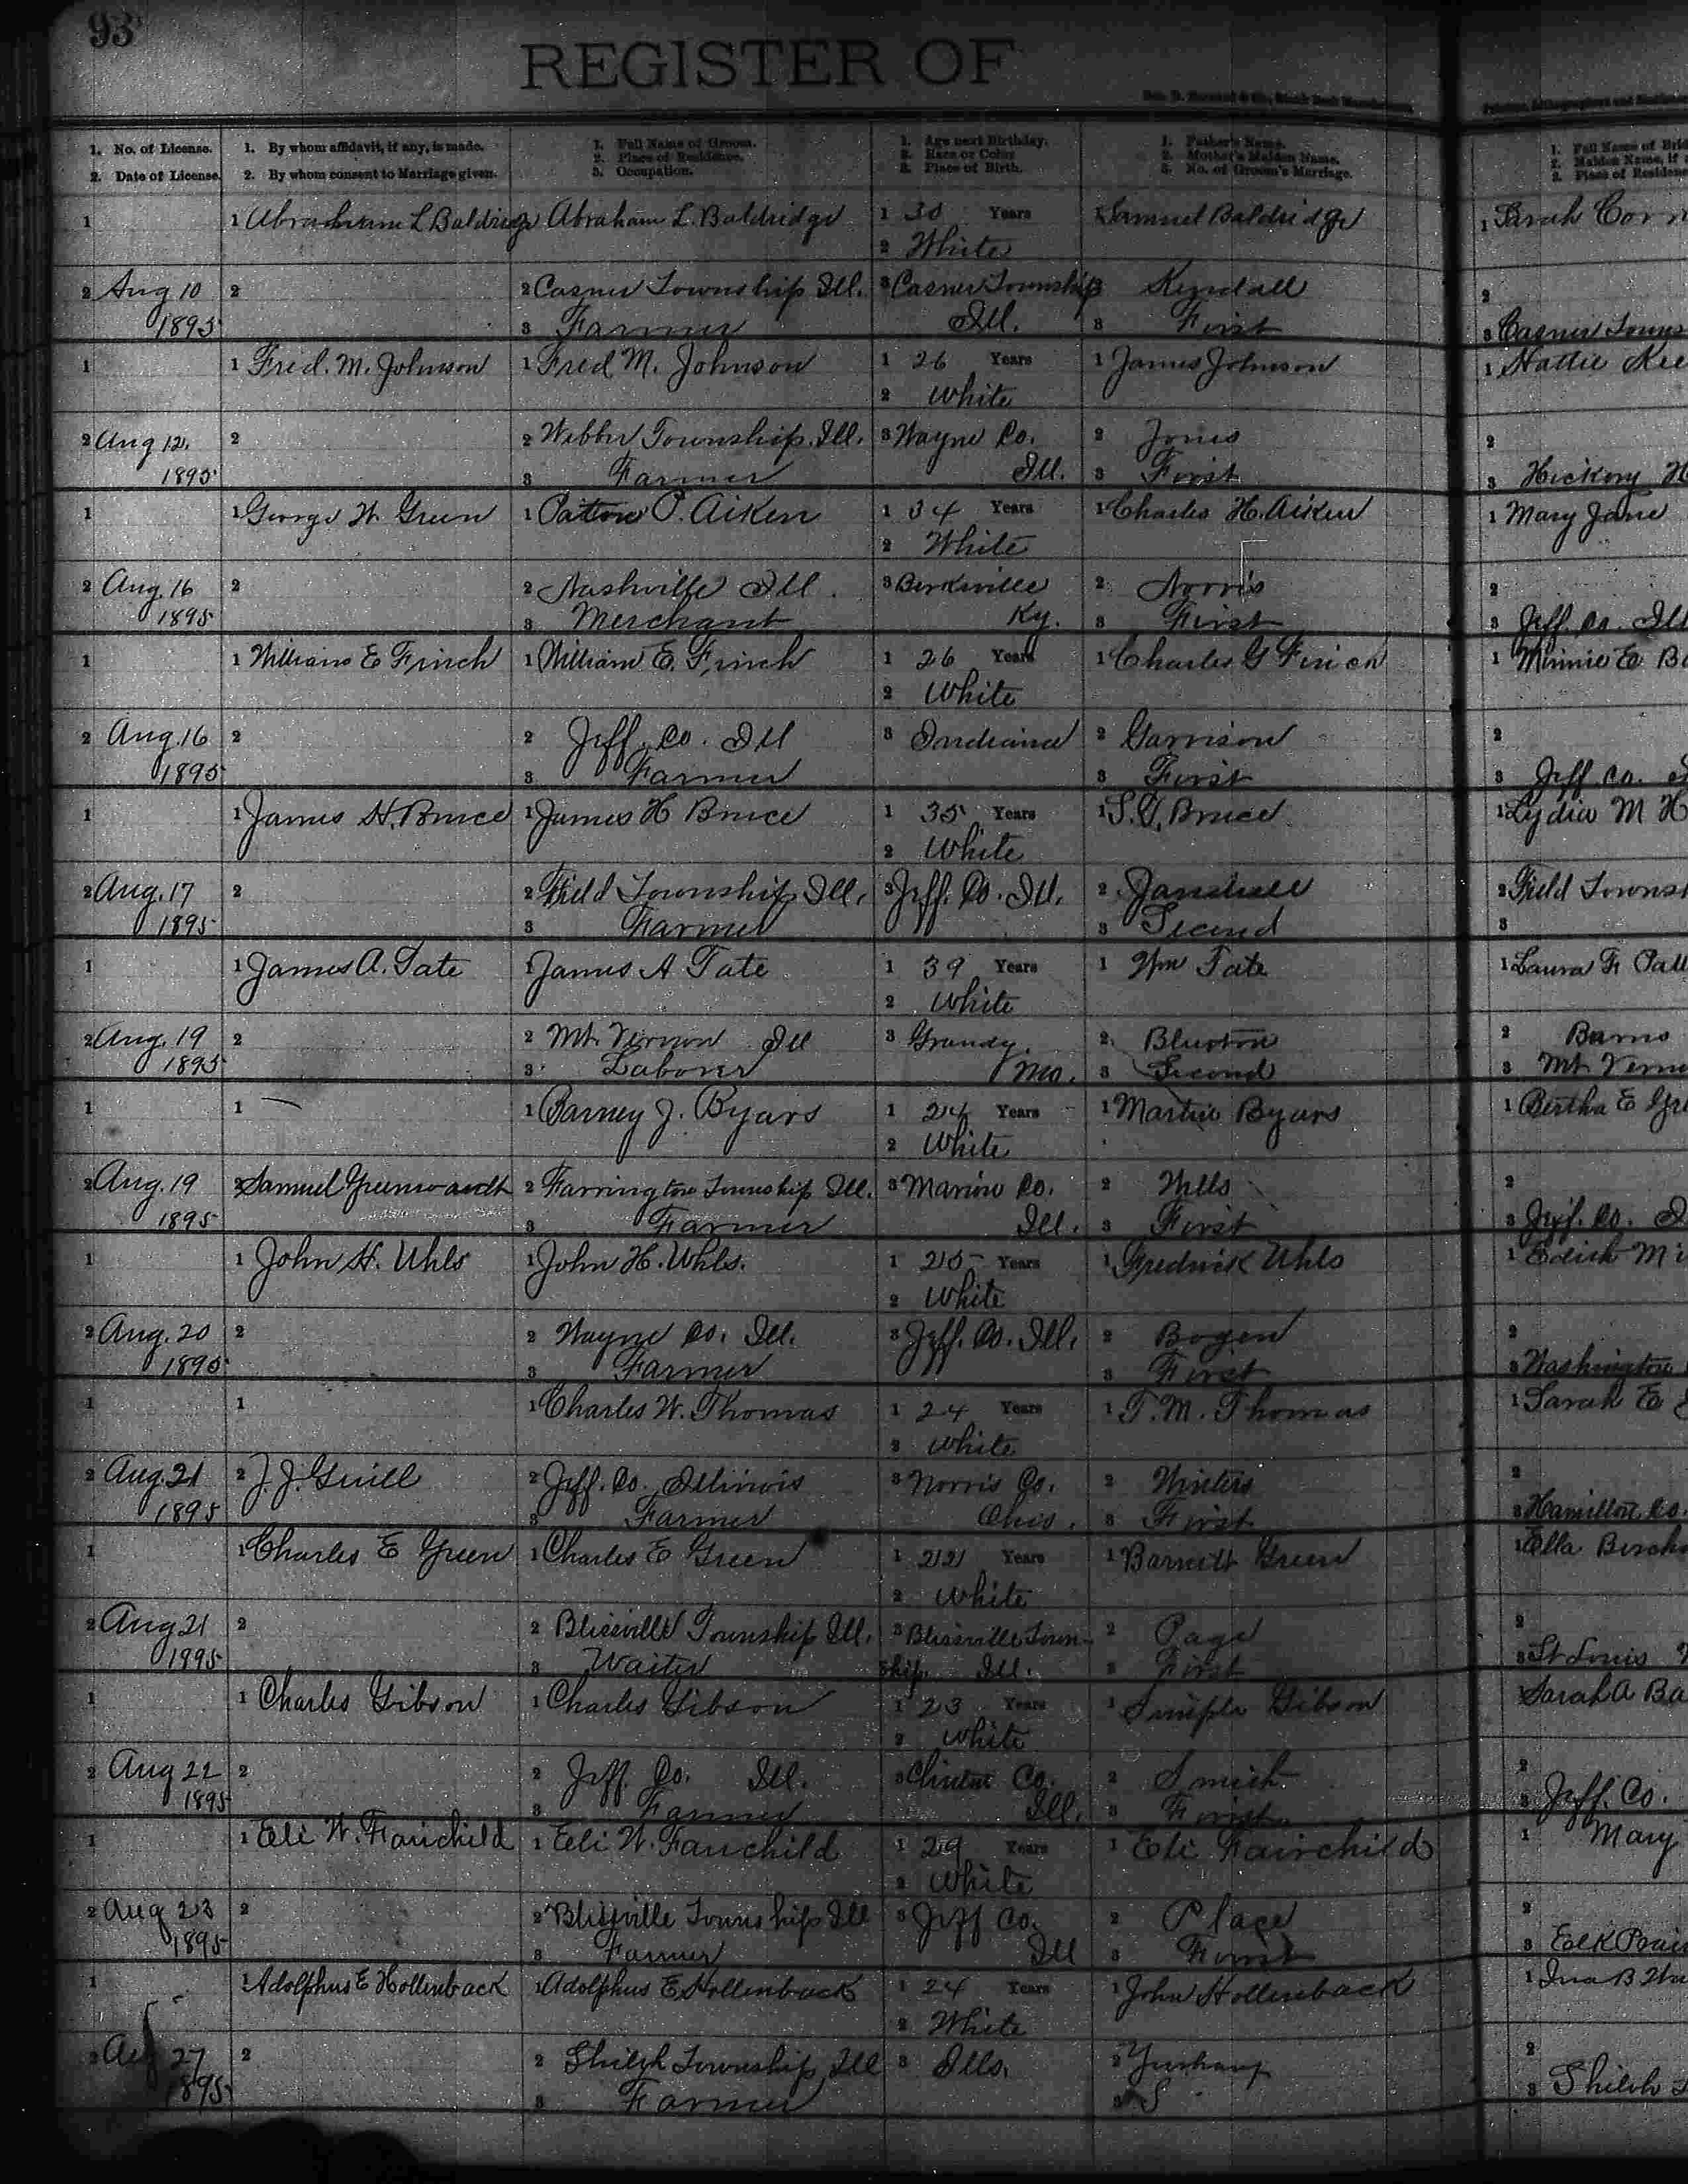 93
REGISTER OF
1. No. of License.
2. Date of License.
1. By whom affidavit, if any, is made.
2. By whom consent to Marriage given.
1. Full Name of Groom.
2. Place of Residence.
3. Occupation.
1. Age next Birthday.
2. Race or Color
3. Place of Birth.
1. Father's Name.
2. Mother's Maiden Name.
3. No. of Groom's Marriage.
1. Full Name of Brid
2. Maiden Name, if
3. Place of Residenc
1 1 Abraham L Baldridge Abraham L. Baldridge 1 30 Years 1 Samuel Baldridge 1 Sarah Corn
2 White
2 Aug 10 2 2 Casner Township Ill. 3 Casner Township 2 Kendall 2
1895 3 Farmer Ill. 3 First 3 Casner Towns
1 1 Fred. M. Johnson 1 Fred M. Johnson 1 26 Years 1 James Johnson 1 Hattie Kee
2 White
2 Aug 12, 2 2 Webber Township, Ill. 3 Wayne Co. 2 Jones 2
1895 3 Farmer Ill. 3 First 3 Hickory H
1 1 George W. Green 1 P. Aiken 1 34 Years 1 Charles H. Aiken 1 Mary Jane
2 White
2 Aug. 16 2 2 Nashville Ill. 3 Berksville 2 Norris 2
1895 3 Merchant Ky. 3 First 3 Jeff. Co. Ill
1 1 William E Frinch 1 William E. Frinch 1 26 Years 1 Charles G 1 Minnie E Ba
2 White
2 Aug. 16 2 2 Jeff. Co. Ill 3 Indiana 2 Garrison 2
1895 3 Farmer 3 First 3 Jeff. Co.
1 1 James H. Bruce 1 James H Bruce 1 35 Years 1 Bruce 1 Lydia M H
2 White
2 Aug. 17 2 2 Field Township Ill. 3 Jeff. Co. Ill. 2 2 Field Townsh
1895 3 Farmer 3 Second 3
1 1 James A. Tate 1 James A Tate 1 39 Years 1 Wm Tate 1 Laura F. Patt
2 White
2 Aug. 19 2 2 Mt. Vernon Ill 3 Grundy 2 2 Barns
1895 3 Laborer Mo. 3 Second 3 Mt. Verno
1 1 1 Barney J. Byars 1 24 Years 1 Martin Byars 1 Bertha E Gre
2 White
2 Aug. 19 2 Samuel 2 Farrington Township Ill. 3 Marion Co. 2 Wells 2
1895 3 Farmer Ill. 3 First 3 Jeff. Co.
1 1 John H. Uhls 1 John H. Uhls. 1 25 Years 1 Fredrick Uhls 1 Edith Mi
2 White
2 Aug. 20 2 2 Wayne Co. Ill. 3 Jeff. Co. Ill. 2 Bogen 2
1895 3 Farmer 3 First 3 Washington
1 1 1 Charles W. Thomas 1 24 Years 1 T. M. Thomas 1 Sarah E
2 White
2 Aug. 21 2 J. J. 2 Jeff. Co. Illinois 3 Norris Co. 2 Winters 2
1895 3 Farmer Ohio. 3 First 3 Hamilton Co.
1 1 Charles E Green 1 Charles E Green 1 22 Years 1 Barnett Green 1 Ella
2 White
2 Aug 21 2 2 Blissville Township Ill. 3 Blissville Town- 2 Page 2
1895 3 Waiter ship Ill. 3 First 3 St Louis
1 1 Charles Gibson 1 Charles Gibson 1 23 Years 1 Gibson 1 Sarah A Ba
2 White
2 Aug 22 2 2 Jeff. Co. Ill. 3 Clinton Co. 2 Smith 2
1895 3 Farmer Ill. 3 First 3 Jeff. Co.
1 1 Eli W. Fairchild 1 Eli W. Fairchild 1 29 Years 1 Eli Fairchild 1 Mary
2 White
2 Aug 23 2 2 Blissville Township Ill 3 Jeff Co. 2 Place 2
1895 3 Farmer Ill 3 First 3 Elk Prair
1 1 Adolphus E Hollenback 1 Adolphus E Hollenback 1 24 Years 1 John Hollenback 1 Ina B
2 White
2 Aug 27 2 2 Shiloh Township Ill 3 Ills. 2 2
1895 3 Farmer 3 S 3 Shiloh